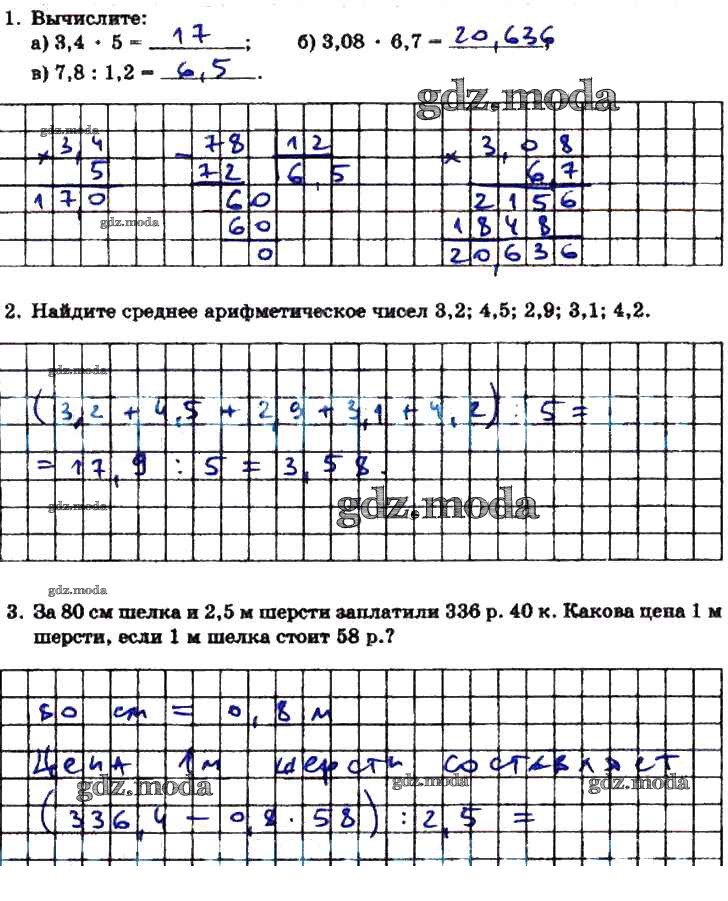 1. Вычислите:
а) 3,4 · 5 = 17 ;
б) 3,08 · 6,7 = 20,636
в) 7,8 : 1,2 = 6,5 .
gdz.moda
gdz.moda
× 3,4
5
170
gdz.moda
- 78 12
72 6,5
60
60
0
× 3,08
6,7
2156
1848
20,636
2. Найдите среднее арифметическое чисел 3,2; 4,5; 2,9; 3,1; 4,2.
gdz.moda
(3,2 + 4,5 + 2,9 + 3,1 + 4,2) : 5 =
= 17,9 : 5 = 3,58.
gdz.moda
gdz.moda
gdz.moda
3. За 80 см шелка и 2,5 м шерсти заплатили 336 р. 40 к. Какова цена 1 м
шерсти, если 1 м шелка стоит 58 р.?
80 cm = 0,8 м
Цена 1м шерсти составляет
gdz.moda
gdz.moda
gdz.moda
(336,4 - 0,8 · 58) : 2,5 =